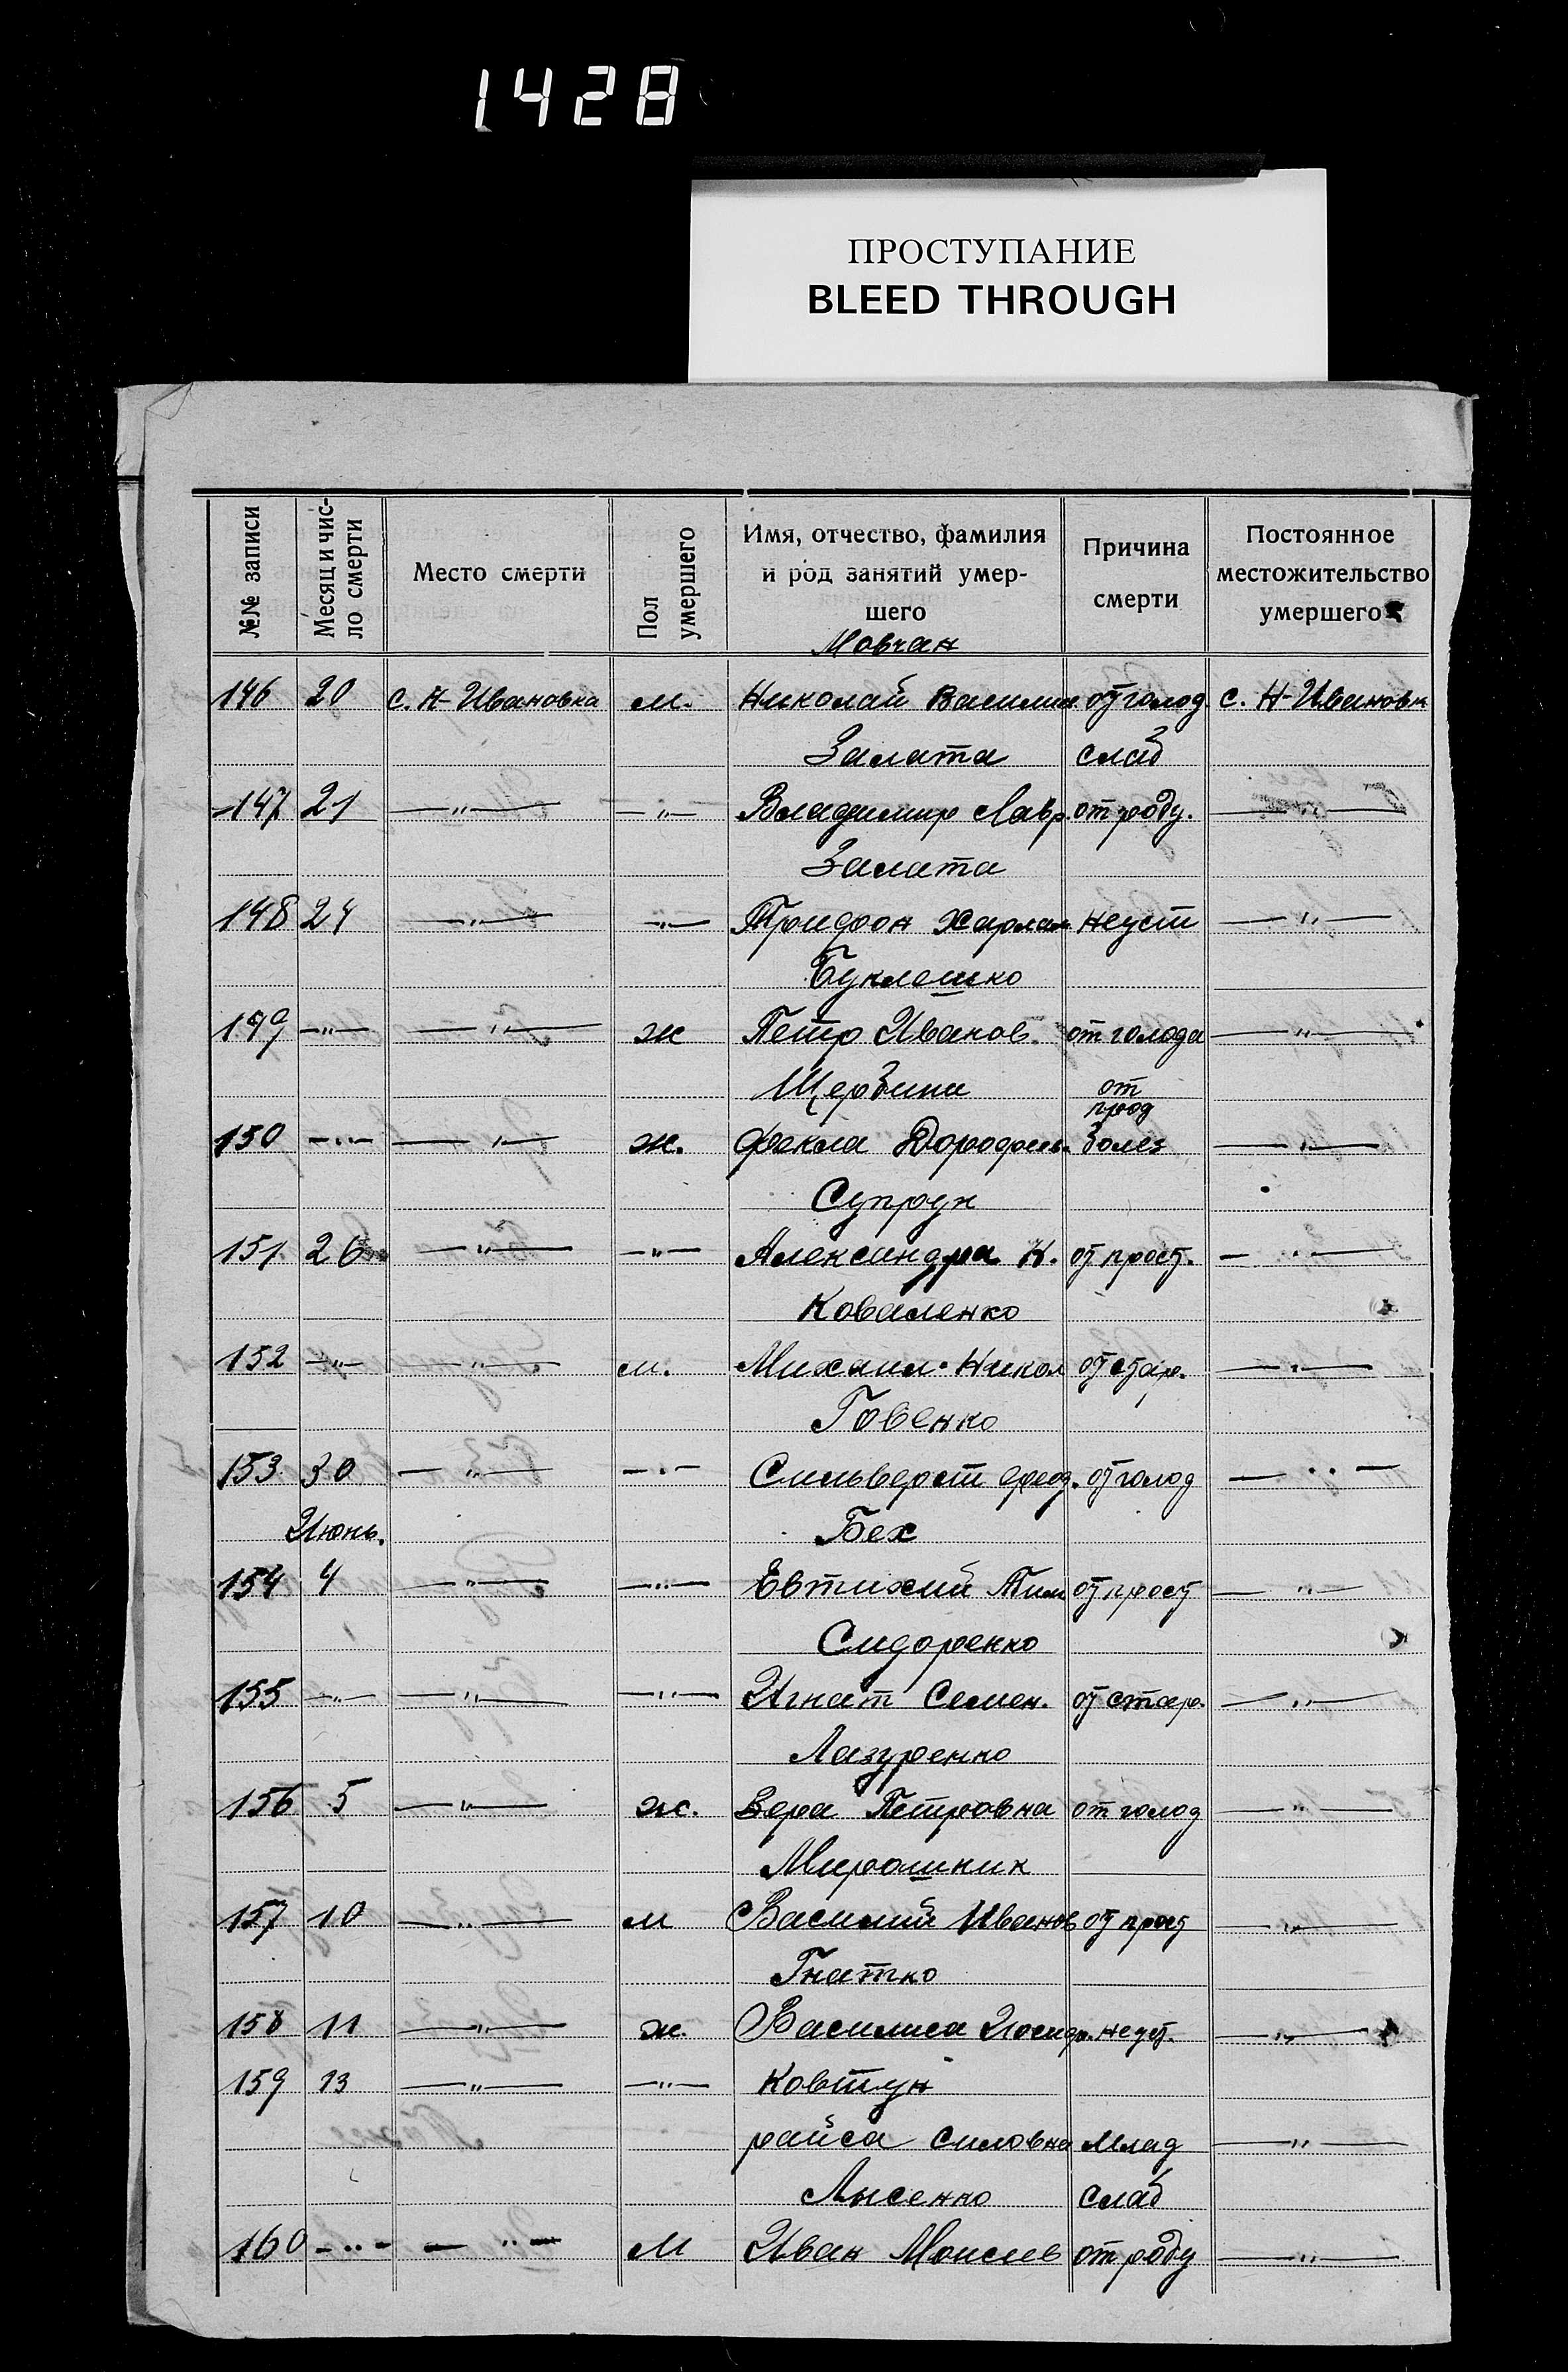 1428
ПРОСТУПАНИЕ
BLEED THROUGH
№№ записи Месяц и чис-ло смерти Место смерти Пол умершего Имя, отчество, фамилия и род занятий умер-шего Причина смерти Постоянное местожительство умершего
Мовчан
146 20 с. Н-Ивановка м. Николай Василив. от голод. с. Н-Ивановк
Залата слаб
147 21 —"— —"— Владимир Лавр. от роду. —"—
Залата
148 24 —"— —"— Трифон Харлам неуст —"—
Буклешко
149 —"— —"— ж Петр Иванов. от голода —"—
Щербина от
прод
150 —"— —"— ж. Фекла Дорофеев. болез —"—
Супрун
151. 26 —"— —"— Александра К. от прост. —"—
Коваленко
152 —"— —"— м. Михаил Никол от стар. —"—
Говенко
153. 30 —"— —"— Сильверст Феод. от голод —"—
Июнь. Бех
154 4 —"— —"— Евтихий Тим от прост —"—
Сидоренко
155 —"— —"— —"— Игнат Семен. от стар. —"—
Лазуренко
156 5 —"— ж. Вера Петровна от голод —"—
Мирошник
157 10 —"— м Василий Иванов от прост —"—
Гнатко
158 11 —"— ж. Василиса Иосиф. неуст. —"—
159 13 —"— —"— Ковтун
райса Силовна млад —"—
Лысенко слаб
160 —"— —"— м Иван Моисев от роду —"—